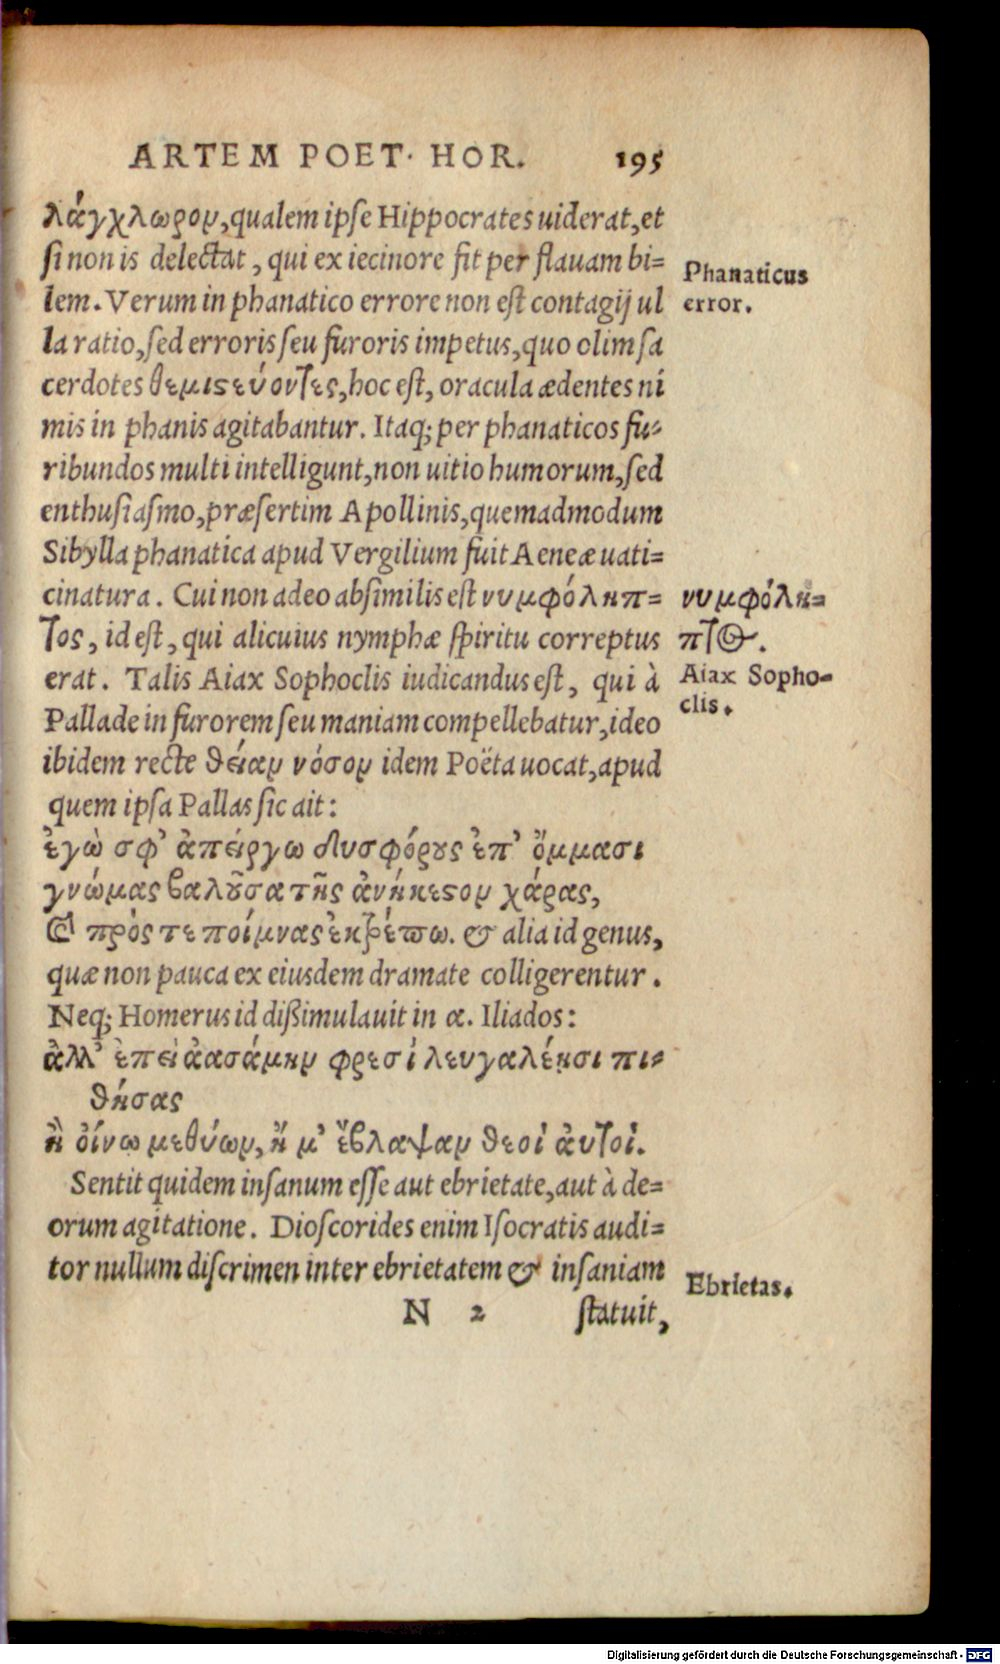 ARTEM POET. HOR. 195
λάγχλωρον, qualem ipse Hippocrates uiderat, et
si non is delectat, qui ex iecinore fit per flauam bi=
lem. Verum in phanatico errore non est contagij ul
la ratio, sed erroris seu furoris impetus, quo olim sa
cerdotes θεμιςεύοντες, hoc est, oracula ædentes ni
mis in phanis agitabantur. Itaq; per phanaticos fu=
ribundos multi intelligunt, non uitio humorum, sed
enthusiasmo, præsertim Apollinis, quemadmodum
Sibylla phanatica apud Vergilium fuit Aeneæ uati=
cinatura. Cui non adeo absimilis est νυμφόληπ=
τος, id est, qui alicuius nymphæ spiritu correptus
erat. Talis Aiax Sophoclis iudicandus est, qui à
Pallade in furorem seu maniam compellebatur, ideo
ibidem recte θείαν νόσον idem Poëta uocat, apud
quem ipsa Pallas sic ait:
ἐγὼ σφ' ἀπείργω δυσφόρους ἐπ' ὄμμασι
γνώμας βαλοῦσα τῆς ἀνήκεςον χάρας,
Καὶ πρὸς τε ποίμνας ἐκτρέπω. & alia id genus,
quæ non pauca ex eiusdem dramate colligerentur.
Neq; Homerus id dißimulauit in α. Iliados:
ἀλλ' ἐπεὶ ἀασάμην φρεσὶ λευγαλέῃσι πι=
θήσας
ἢ οἴνω μεθύων, ἤ μ' ἔβλαψαν θεοὶ ἀυτοί.
Sentit quidem insanum esse aut ebrietate, aut à de=
orum agitatione. Dioscorides enim Isocratis audi=
tor nullum discrimen inter ebrietatem & insaniam
N 2 statuit,
Phanaticus
error.
νυμφόλη=
πτος.
Aiax Sopho=
clis.
Ebrietas.
Digitalisierung gefördert durch die Deutsche Forschungsgemeinschaft - DFG